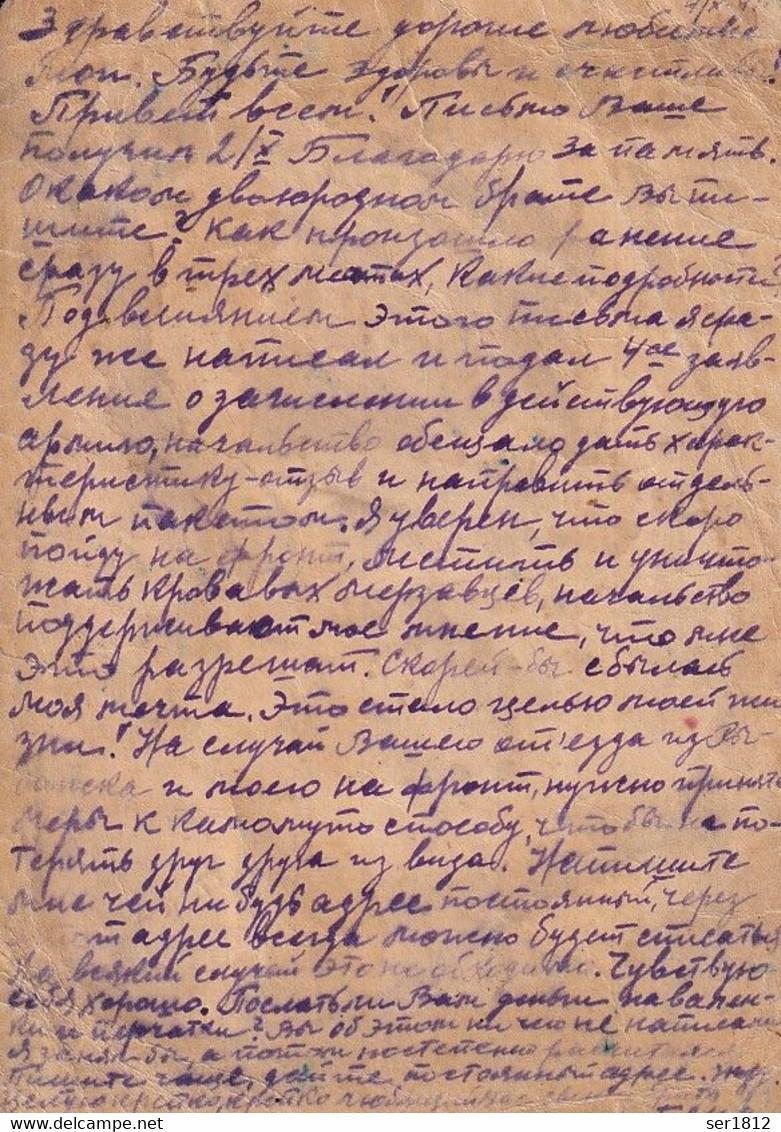 Здравствуйте дорогие любимые
мои. Будьте здоровы и счастливы!
Привет всем! Письмо Ваше
получил 2/X Благодарю за память.
О каком двоюродном брате вы пи-
шите? Как произошло ранение
сразу в трех местах, какие подробности?
Под влиянием этого письма я сра-
зу же написал и подал 4ое заяв-
ление о зачислении в действующую
армию, начальство обещало дать харак-
теристику-отзыв и направить отдель-
ным пакетом. Я уверен, что скоро
пойду на фронт, мстить и уничто-
жать кровавых мерзавцев, начальство
поддерживают мое мнение, что мне
это разрешат. Скорей-бы сбылась
моя мечта. Это стало целью моей жи
зни! На случай Вашего от'езда из Ры-
бинска и моего на фронт, нужно принять
меры к какомуто способу, чтобы не по-
терять друг друга из вида. Напишите
мне чей нибудь адрес постоянный, через
адрес всегда можно будет списаться
На всякий случай это необходимо. Чувствую
себя хорошо. Послать ли Вам деньги на вален-
ки и перчатки? Вы об этом ничего не написали
Я занял бы, а потом постепенно
Пишите чаще, дайте постоянный адрес. Жду
целую крепко, крепко
ser1812